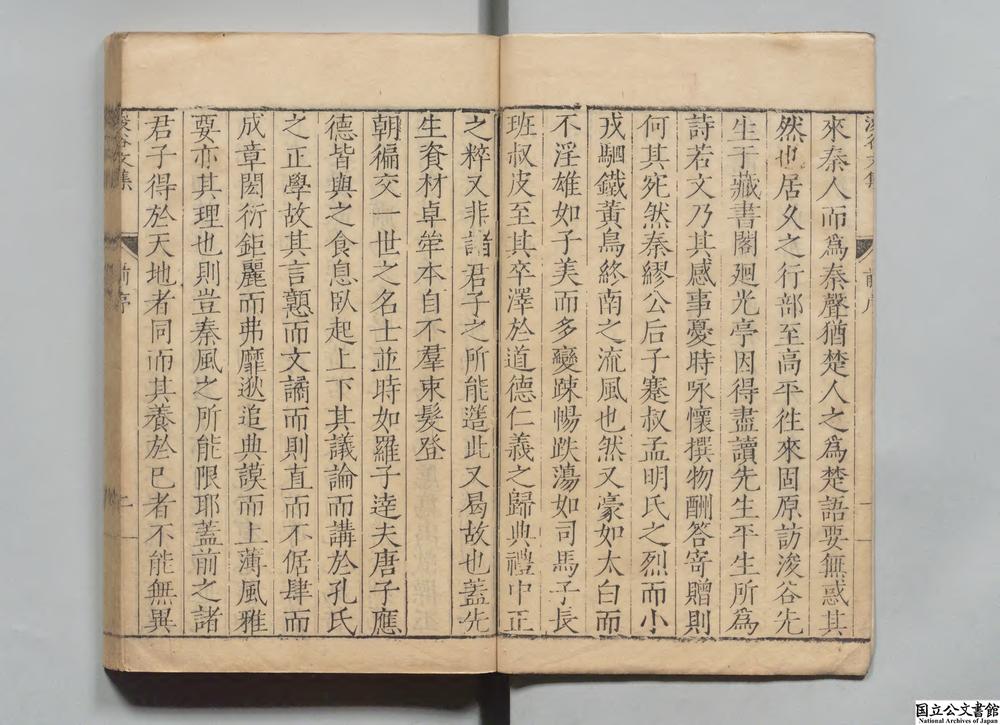 來秦人而爲秦聲猶楚人之爲楚語要無惑其
然也居久之行部至高平徃來固原訪浚谷先
生于藏書閣廻光亭因得盡讀先生平生所爲
詩若文乃其感事憂時咏懷撰物酬答寄贈則
何其宛然秦繆公后子蹇叔孟明氏之烈而小
戎駟鐵黃鳥終南之流風也然又豪如太白而
不淫雄如子美而多變踈暢跌蕩如司馬子長
班叔皮至其卒澤於道德仁義之歸典禮中正
之粹又非諸君子之所能簉此又曷故也蓋先
生資材卓犖本自不羣束髮登
朝徧交一世之名士並時如羅子逹夫唐子應
德皆與之食息臥起上下其議論而講於孔氏
之正學故其言邃而文譎而則直而不倨肆而
成章閎衍鉅麗而弗靡逖追典謨而上薄風雅
要亦其理也則豈秦風之所能限耶蓋前之諸
君子得於天地者同而其養於已者不能無異
浚谷文集
前序
二
国立公文書館
National Archives of Japan